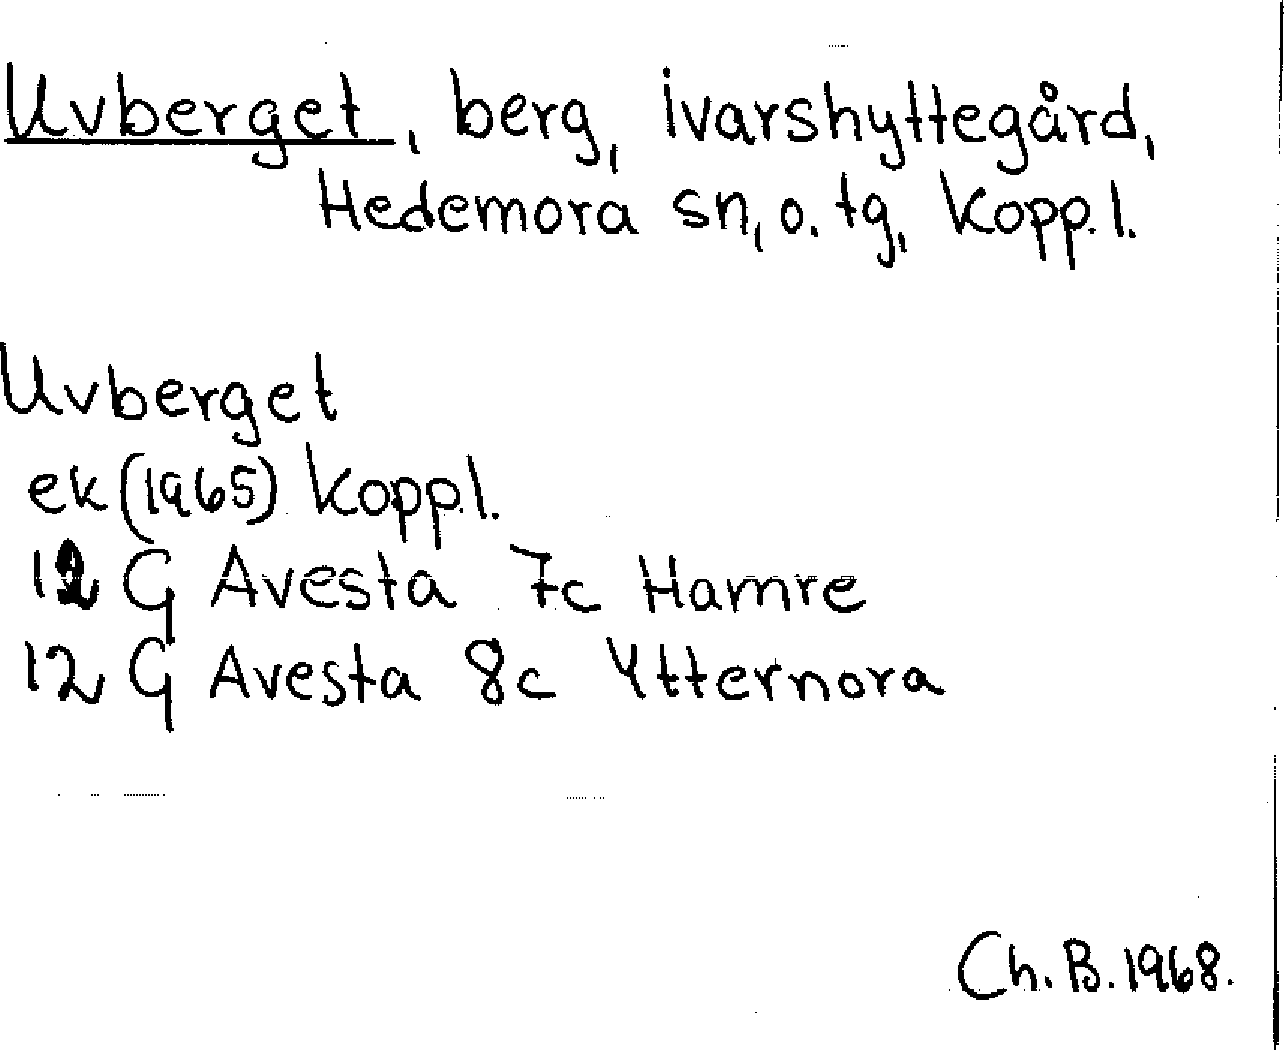 Uvberget, berg, Ivarshyttegård,
Hedemora sn, o. tg, Kopp.l.
Uvberget
ek (1965) Koppl.
12 G Avesta 7c Hamre
12 G Avesta 8c Ytternora
Ch. B. 1968.